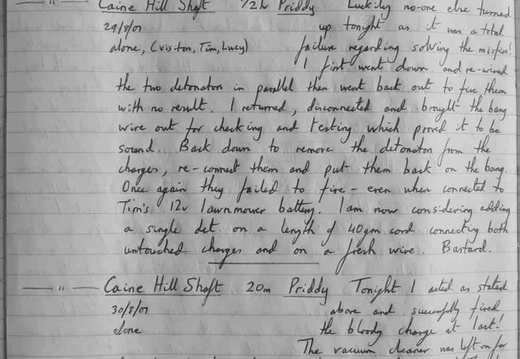 — " — Caine Hill Shaft 1/2hr Priddy Luckily no-one else turned
29/8/01 up tonight as it was a total
alone, (visitor, Tim, Lucy) failure regarding solving the misfire!
I first went down and re-wired
the two detonators in parallel then went back out to fire them
with no result. I returned, disconnected and brought the bang
wire out for checking and testing which proved it to be
sound... Back down to remove the detonators from the
charges, re-connect them and put them back on the bang.
Once again they failed to fire - even when connected to
Tim's 12v lawnmower battery. I am now considering adding
a single det on a length of 40gm cord connecting both
untouched charges and on a fresh wire. Bastard.
— " — Caine Hill Shaft 20m Priddy Tonight I acted as stated
30/8/01 above and successfully fired
alone the bloody charge at last!
The vacuum cleaner was left on for